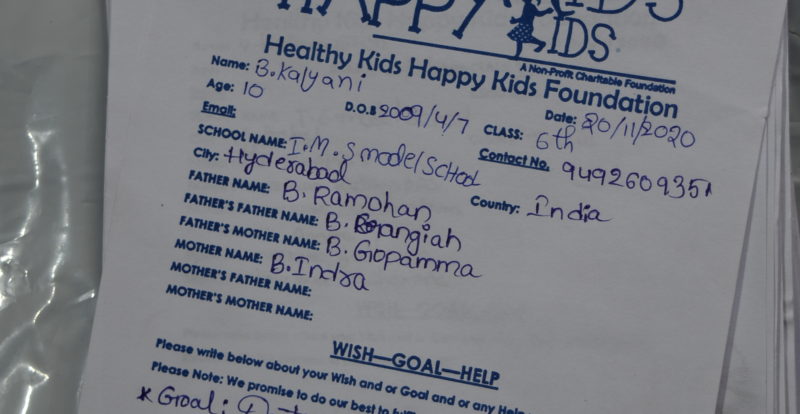 HAPPY KIDS
KIDS
A Non-Profit Charitable Foundation
Healthy Kids Happy Kids Foundation
Name: B.Kalyani
Age: 10 D.O.B 2009/4/7 Date: 20/11/2020
Email: CLASS: 6th
SCHOOL NAME: I.M.S model School Contact No. 9492609351
City: Hyderabad Country: India
FATHER NAME: B. Ramohan
FATHER'S FATHER NAME: B. Rangiah
FATHER'S MOTHER NAME: B. Gopamma
MOTHER NAME: B.Indra
MOTHER'S FATHER NAME:
MOTHER'S MOTHER NAME:
WISH—GOAL—HELP
Please write below about your Wish and or Goal and or any Help
Please Note: We promise to do our best to
* Goal: